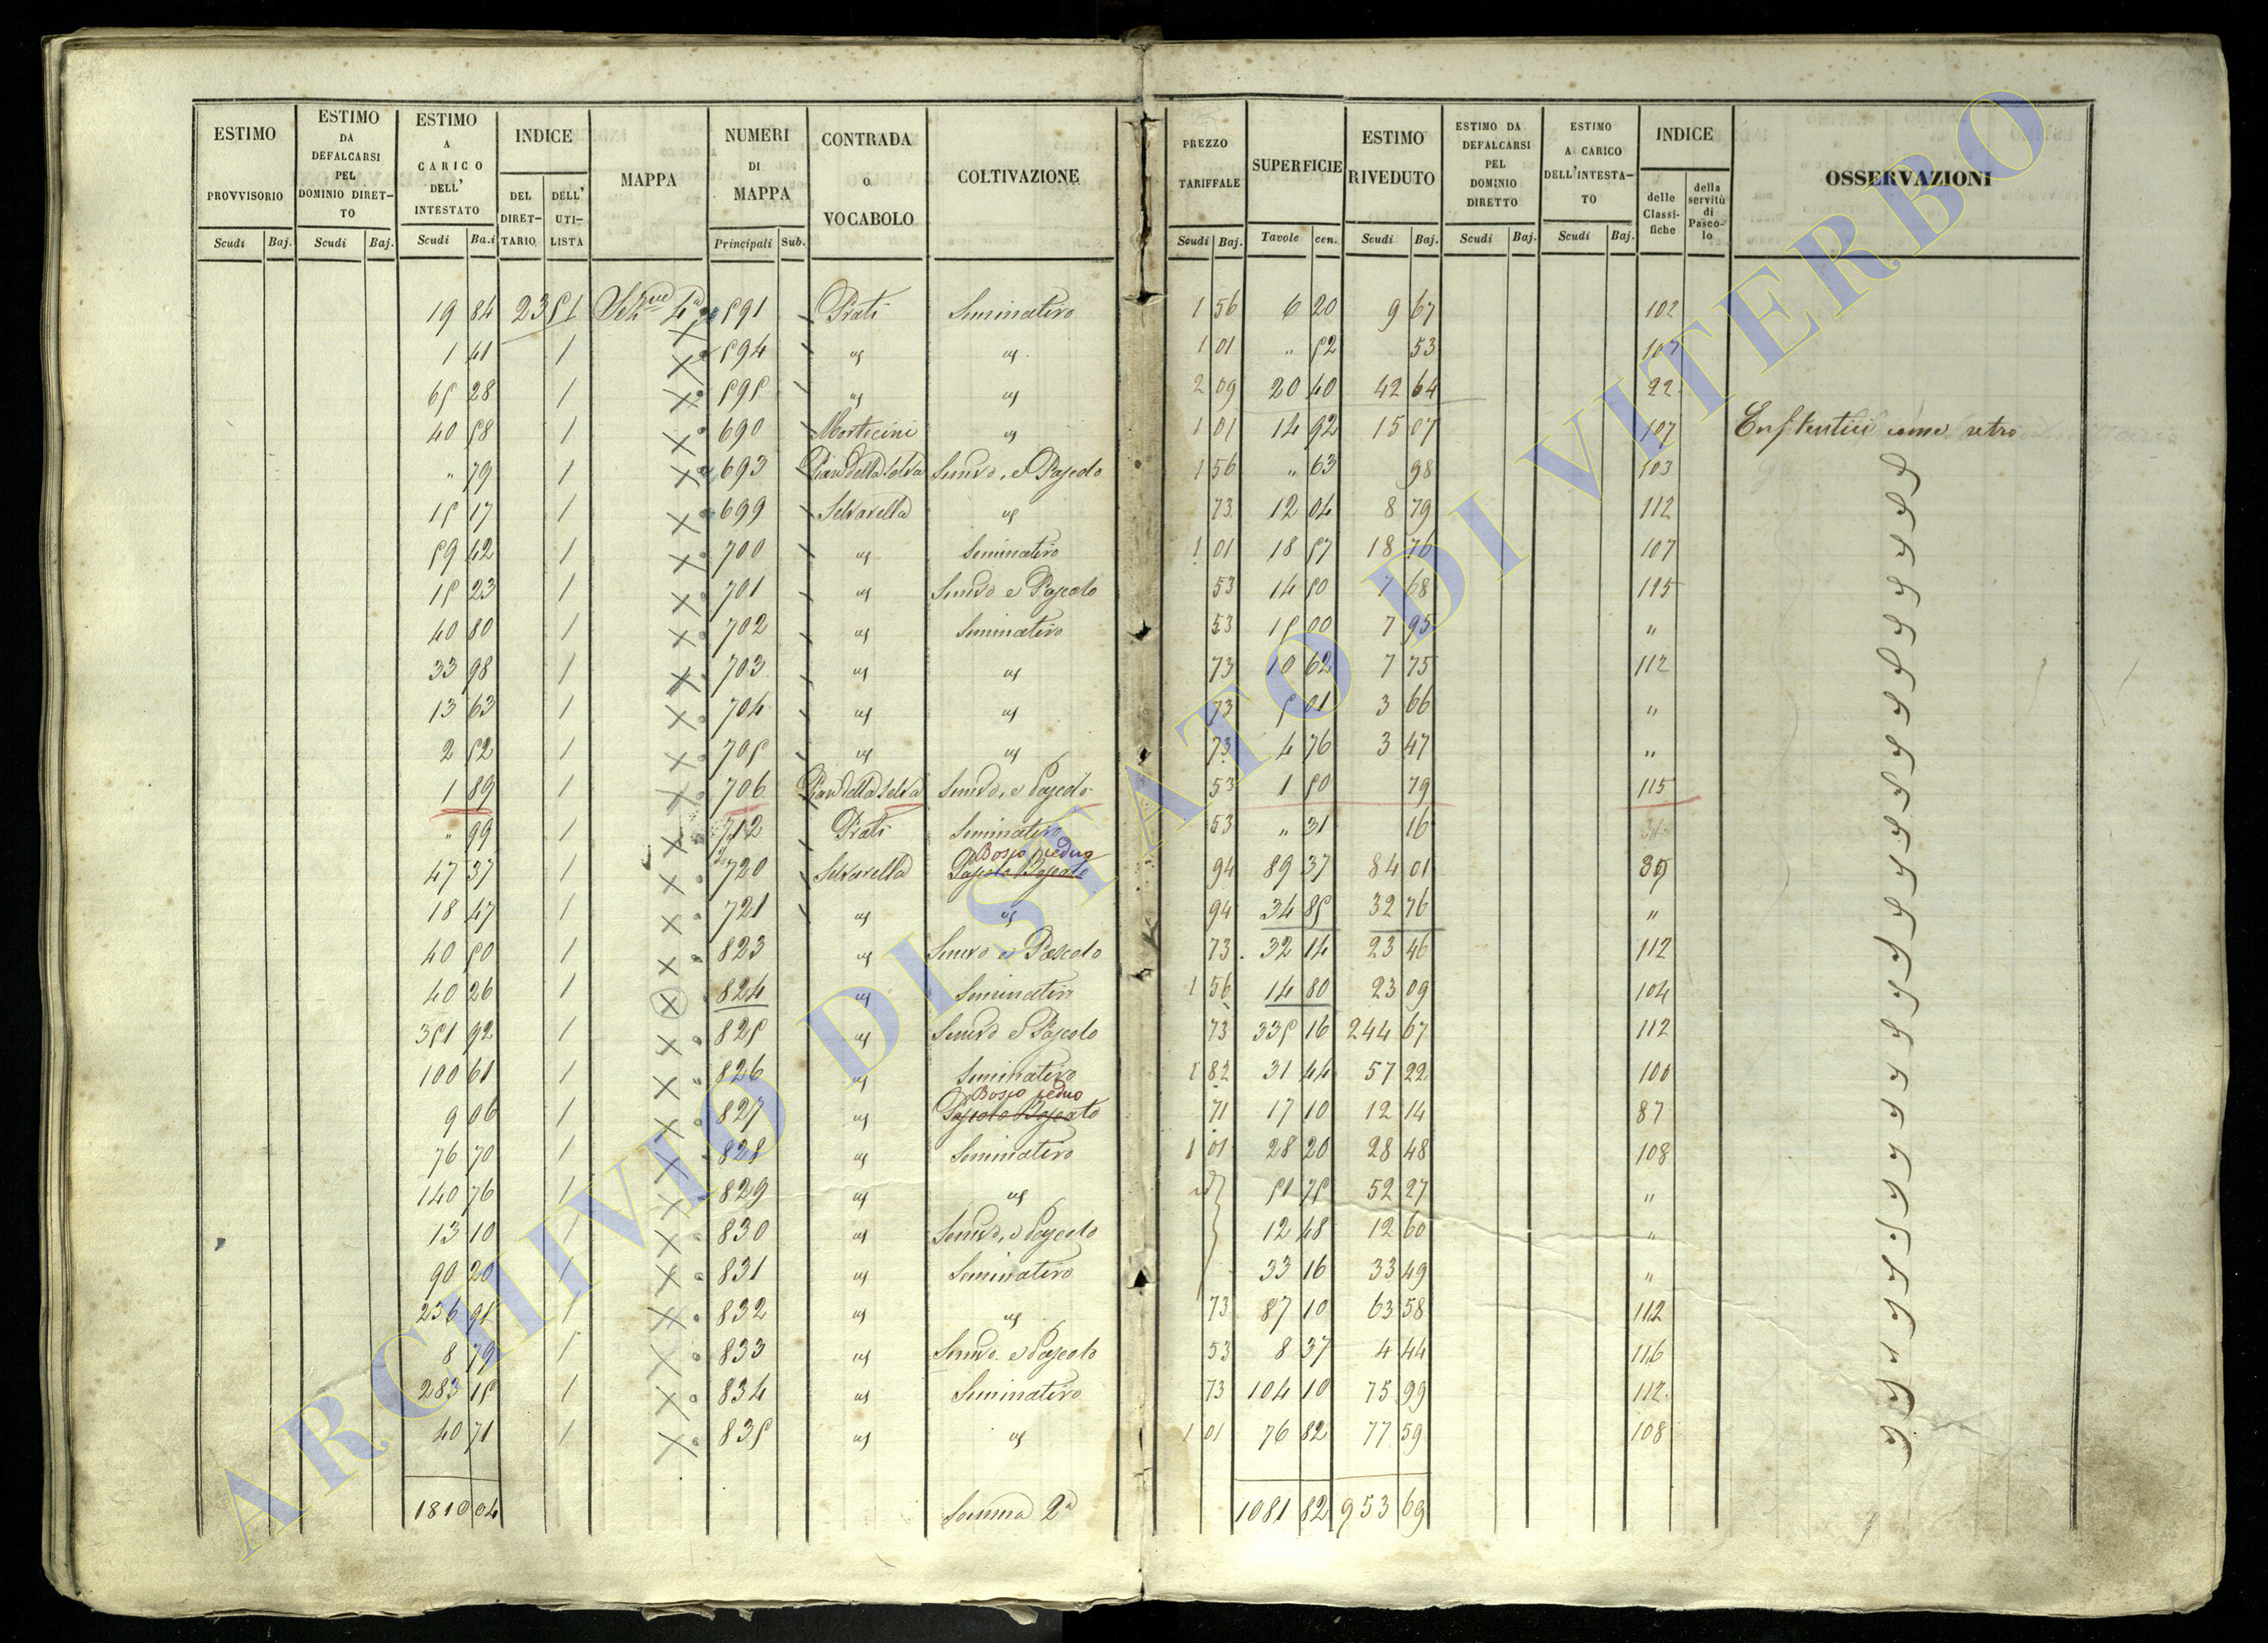 ESTIMO PROVVISORIO Scudi Baj. | ESTIMO DA DEFALCARSI PEL DOMINIO DIRETTO Scudi Baj. | ESTIMO A CARICO DELL' INTESTATO Scudi Ba.i | INDICE DEL DIRETTARIO DELL' UTILISTA | MAPPA | NUMERI DI MAPPA Principali Sub. | CONTRADA O VOCABOLO | COLTIVAZIONE | PREZZO TARIFFALE Scudi Baj. | SUPERFICIE Tavole cen. | ESTIMO RIVEDUTO Scudi Baj. | ESTIMO DA DEFALCARSI PEL DOMINIO DIRETTO Scudi Baj. | ESTIMO A CARICO DELL'INTESTATO Scudi Baj. | INDICE delle Classifiche della servitù di Pascolo | OSSERVAZIONI
19 84 23 51 591 Prati Seminativo 1 56 6 20 9 67 102
1 41 1 594 1 01 " 52 53 107
65 28 1 595 2 09 20 40 42 64 22
40 58 1 690 Morticini 1 01 14 92 15 07 107 come retro
" 79 1 693 Pian della Selva Semvo, e Pascolo 1 56 " 63 98 103
15 17 1 699 Selvarella 73 12 04 8 79 112
59 42 1 700 Seminativo 1 01 18 57 18 76 107
15 23 1 701 Semvo e Pascolo 53 14 50 7 68 115
40 80 1 702 Seminativo 53 15 00 7 95 "
33 98 1 703 73 10 62 7 75 112
13 63 1 704 73 5 01 3 66 "
2 52 1 705 73 4 76 3 47 "
1 89 1 706 Pian della Selva Semvo, e Pascolo 53 1 50 79 115
" 99 1 712 Prati Seminativo 53 " 31 16
47 37 1 720 Selvarella Bosco ceduo Pascolo Boscato 94 89 37 84 01
18 47 1 721 94 34 85 32 76 "
40 50 1 823 Semvo e Pascolo 73 32 14 23 46 112
40 26 1 824 Seminativo 1 56 14 80 23 09 104
351 92 1 825 Semvo e Pascolo 73 335 16 244 67 112
100 61 1 826 Seminativo 1 82 31 44 57 22 100
9 06 1 827 Bosco ceduo Pascolo Boscato 71 17 10 12 14 87
76 70 1 828 Seminativo 1 01 28 20 28 48 108
140 76 1 829 51 75 52 27 "
13 10 1 830 Semvo, e Pascolo 12 48 12 60 "
90 20 1 831 Seminativo 33 16 33 49 "
236 91 1 832 73 87 10 63 58 112
8 79 1 833 Semvo e Pascolo 53 8 37 4 44 116
283 15 1 834 Seminativo 73 104 10 75 99 112
40 71 1 835 1 01 76 82 77 59 108
1810 04 Somma 2a 1081 82 953 69
ARCHIVIO DI STATO DI VITERBO